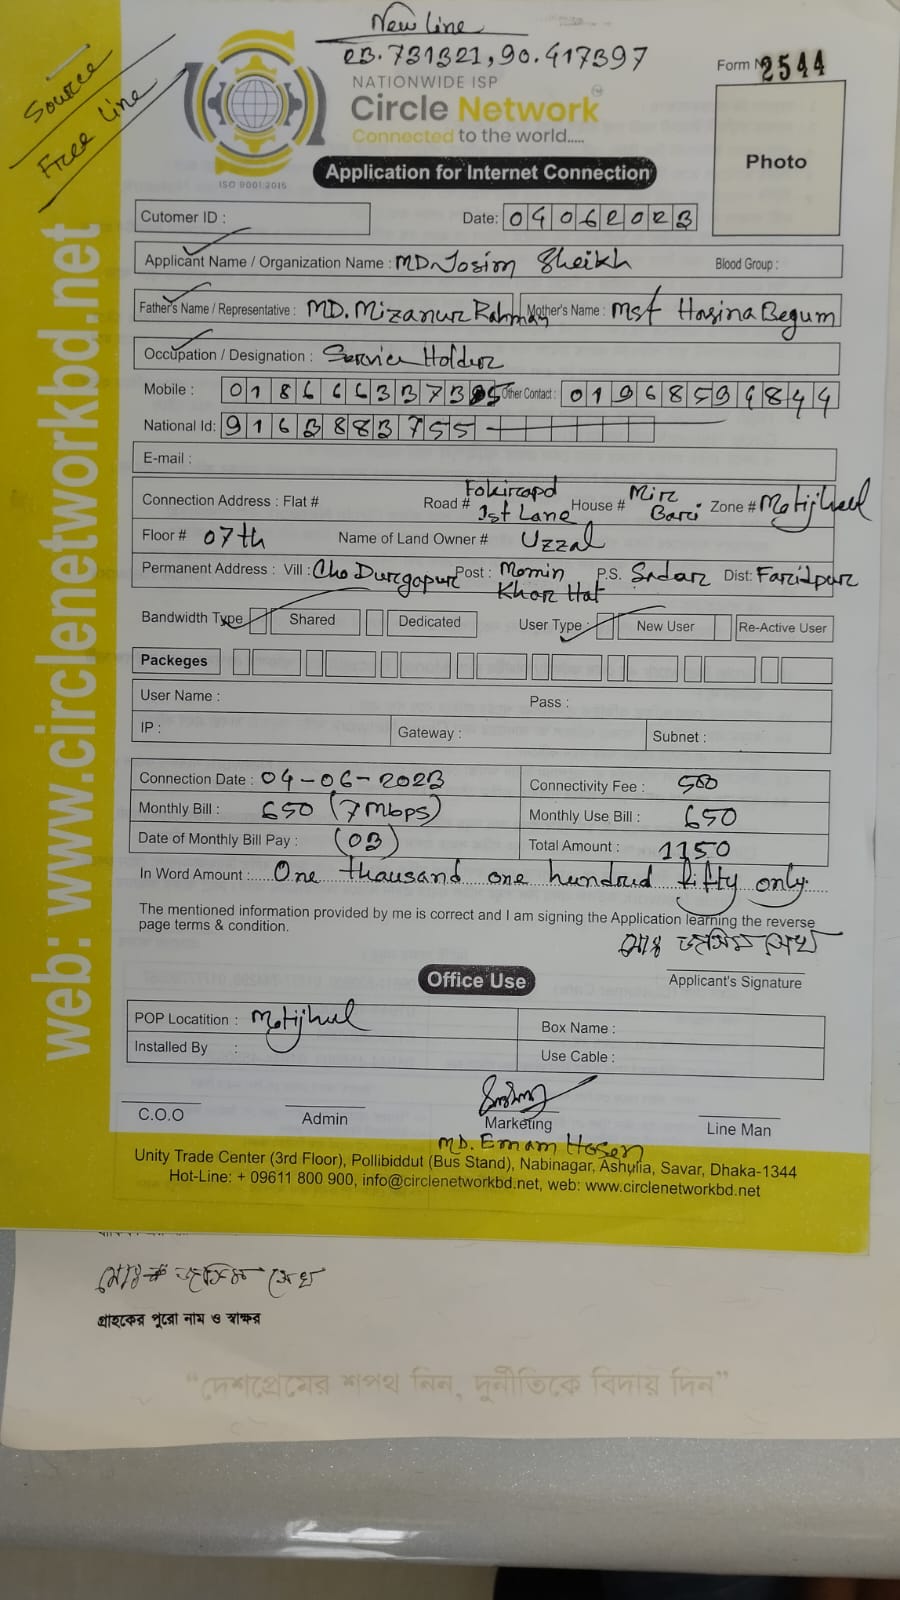 New Line
23.731321,90.417397
Source
Free Line
NATIONWIDE ISP
Circle Network
Connected to the world.....
ISO 9001:2015
Form N 2544
Photo
Application for Internet Connection
Cutomer ID :
Date: 04062023
Applicant Name / Organization Name : MD. Josim Sheikh Blood Group :
Father's Name / Representative : MD. Mizanur Rahman Mother's Name : Mst Hasina Begum
Occupation / Designation : Service Holder
Mobile : 01866633735 Other Contact : 01968594844
National Id: 9163883755
E-mail :
Connection Address : Flat # Road # Fokirapol 1st Lane House # Mir Bari Zone # Motijheel
Floor # 07th Name of Land Owner # Uzzal
Permanent Address : Vill : Cho Durgapur Post : Momin Khar Hat P.S. Sadar Dist: Faridpur
Bandwidth Type Shared Dedicated User Type : New User Re-Active User
Packeges
User Name : Pass :
IP : Gateway : Subnet :
Connection Date : 04-06-2023 Connectivity Fee : 500
Monthly Bill : 650 (7Mbps) Monthly Use Bill : 650
Date of Monthly Bill Pay : (03) Total Amount : 1150
In Word Amount : One thousand one hundred fifty only.
The mentioned information provided by me is correct and I am signing the Application learning the reverse
page terms & condition.
মোঃ জসিম শেখ
Applicant's Signature
Office Use
POP Locatition : Motijheel Box Name :
Installed By : Use Cable :
C.O.O Admin Marketing Line Man
MD. Emam Hosen
Unity Trade Center (3rd Floor), Pollibiddut (Bus Stand), Nabinagar, Ashulia, Savar, Dhaka-1344
Hot-Line: + 09611 800 900, info@circlenetworkbd.net, web: www.circlenetworkbd.net
web: www.circlenetworkbd.net
মোঃ জসিম শেখ
গ্রাহকের পুরো নাম ও স্বাক্ষর
“দেশপ্রেমের শপথ নিন, দুর্নীতিকে বিদায় দিন”